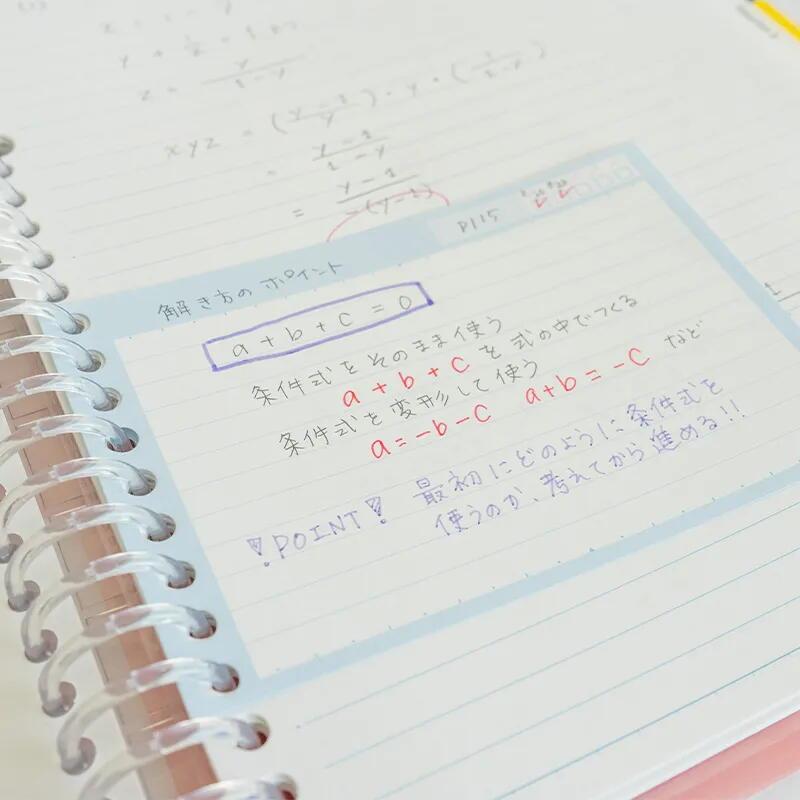 xyz = (y-1/y) · y · (1/1-y)
= y-1/1-y
= y-1/-(y-1)
P115
解き方のポイント
a + b + c = 0
条件式をそのまま使う
a + b + c を 式の中でつくる
条件式を変形して使う
a = -b - c a + b = -c など
POINT! 最初にどのように条件式を
使うのか、考えてから進める!!